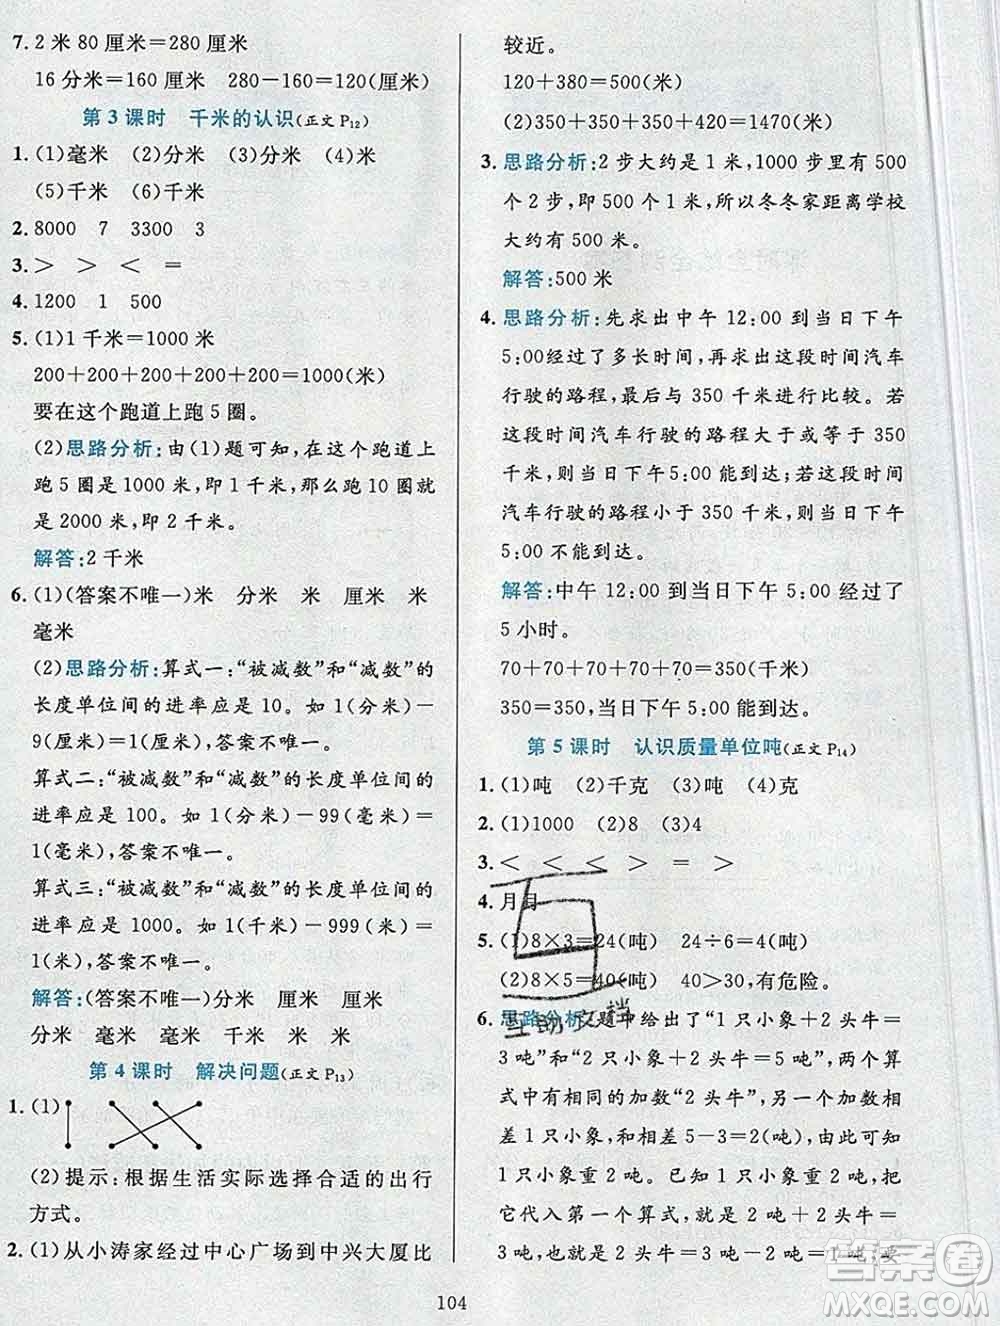 7. 2 米 80 厘米=280 厘米
16 分米=160 厘米 280-160=120(厘米)
第 3 课时 千米的认识(正文 P12)
1. (1)毫米 (2)分米 (3)分米 (4)米
(5)千米 (6)千米
2. 8000 7 3300 3
3. > > < =
4. 1200 1 500
5. (1)1 千米=1000 米
200+200+200+200+200=1000(米)
要在这个跑道上跑 5 圈。
(2)思路分析:由(1)题可知,在这个跑道上
跑 5 圈是 1000 米,即 1 千米,那么跑 10 圈就
是 2000 米,即 2 千米。
解答:2 千米
6. (1)(答案不唯一)米 分米 米 厘米 米
毫米
(2)思路分析:算式一:“被减数”和“减数”的
长度单位间的进率应是 10。如 1(分米)-
9(厘米)=1(厘米),答案不唯一。
算式二:“被减数”和“减数”的长度单位间的
进率应是 100。如 1(分米)-99(毫米)=
1(毫米),答案不唯一。
算式三:“被减数”和“减数”的长度单位间的
进率应是 1000。如 1(千米)-999(米)=
1(米),答案不唯一。
解答:(答案不唯一)分米 厘米 厘米
分米 毫米 毫米 千米 米 米
第 4 课时 解决问题(正文 P13)
1. (1)
(2)提示:根据生活实际选择合适的出行
方式。
2. (1)从小涛家经过中心广场到中兴大厦比
较近。
120+380=500(米)
(2)350+350+350+420=1470(米)
3. 思路分析:2 步大约是 1 米,1000 步里有 500
个 2 步,即 500 个 1 米,所以冬冬家距离学校
大约有 500 米。
解答:500 米
4. 思路分析:先求出中午 12:00 到当日下午
5:00经过了多长时间,再求出这段时间汽车
行驶的路程,最后与 350 千米进行比较。若
这段时间汽车行驶的路程大于或等于 350
千米,则当日下午 5:00 能到达;若这段时间
汽车行驶的路程小于 350 千米,则当日下午
5:00 不能到达。
解答:中午 12:00 到当日下午 5:00 经过了
5 小时。
70+70+70+70+70=350(千米)
350=350,当日下午 5:00 能到达。
第 5 课时 认识质量单位吨(正文 P14)
1. (1)吨 (2)千克 (3)吨 (4)克
2. (1)1000 (2)8 (3)4
3. < < < > = >
4. 月月
5. (1)8×3=24(吨) 24÷6=4(吨)
(2)8×5=40(吨) 40>30,有危险。
6. 思路分析:题中给出了“1 只小象+2 头牛=
3 吨”和“2 只小象+2 头牛=5 吨”,两个算
式中有相同的加数“2 头牛”,另一个加数相
差 1 只小象,和相差 5-3=2(吨),由此可
得,1 只小象重 2 吨。已知 1 只小象重 2 吨,把
它代入第一个算式,就是 2 吨+2 头牛=
3 吨,也就是 2 头牛=3 吨-2 吨=1 吨,要
104
互助文档
答案圈
MXQE.COM